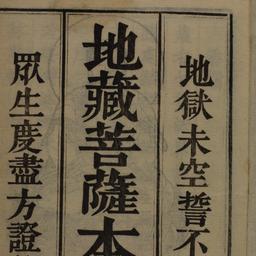 地獄未空誓不
地藏菩薩本
眾生度盡方證